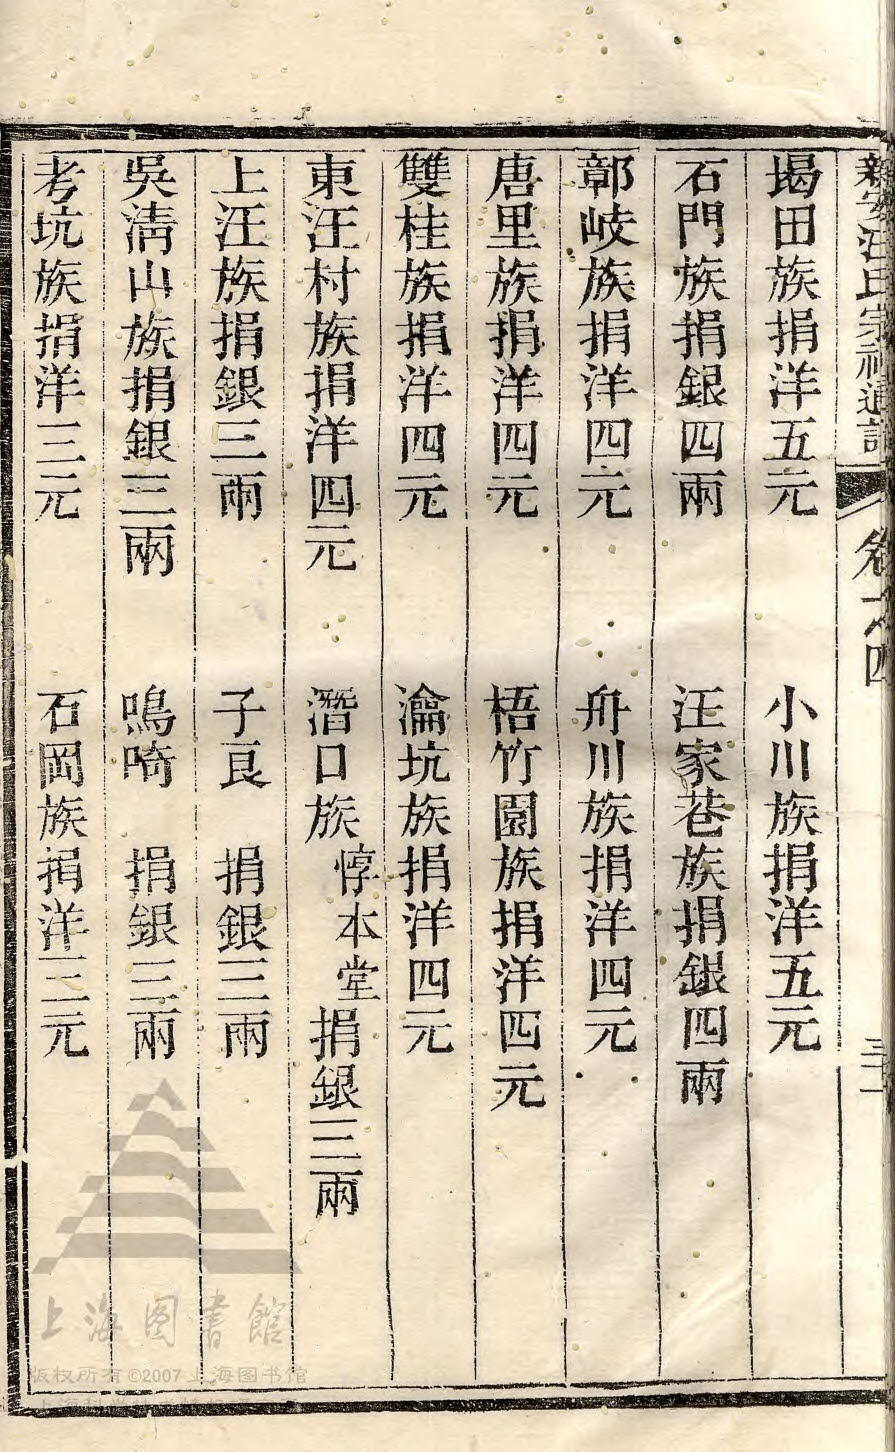 新安汪氏宗祠通譜 卷之四
堨田族捐洋五元 小川族捐洋五元
石門族捐銀四兩 汪家巷族捐銀四兩
鄣岐族捐洋四元 舟川族捐洋四元
唐里族捐洋四元 梧竹園族捐洋四元
雙桂族捐洋四元 瀹坑族捐洋四元
東汪村族捐洋四元 潛口族惇本堂捐銀三兩
上汪族捐銀三兩 子良 捐銀三兩
吳淸山族捐銀三兩 鳴啼 捐銀三兩
考坑族捐洋三元 石岡族捐洋三元
上海图書館
版权所有©2007上海图书馆